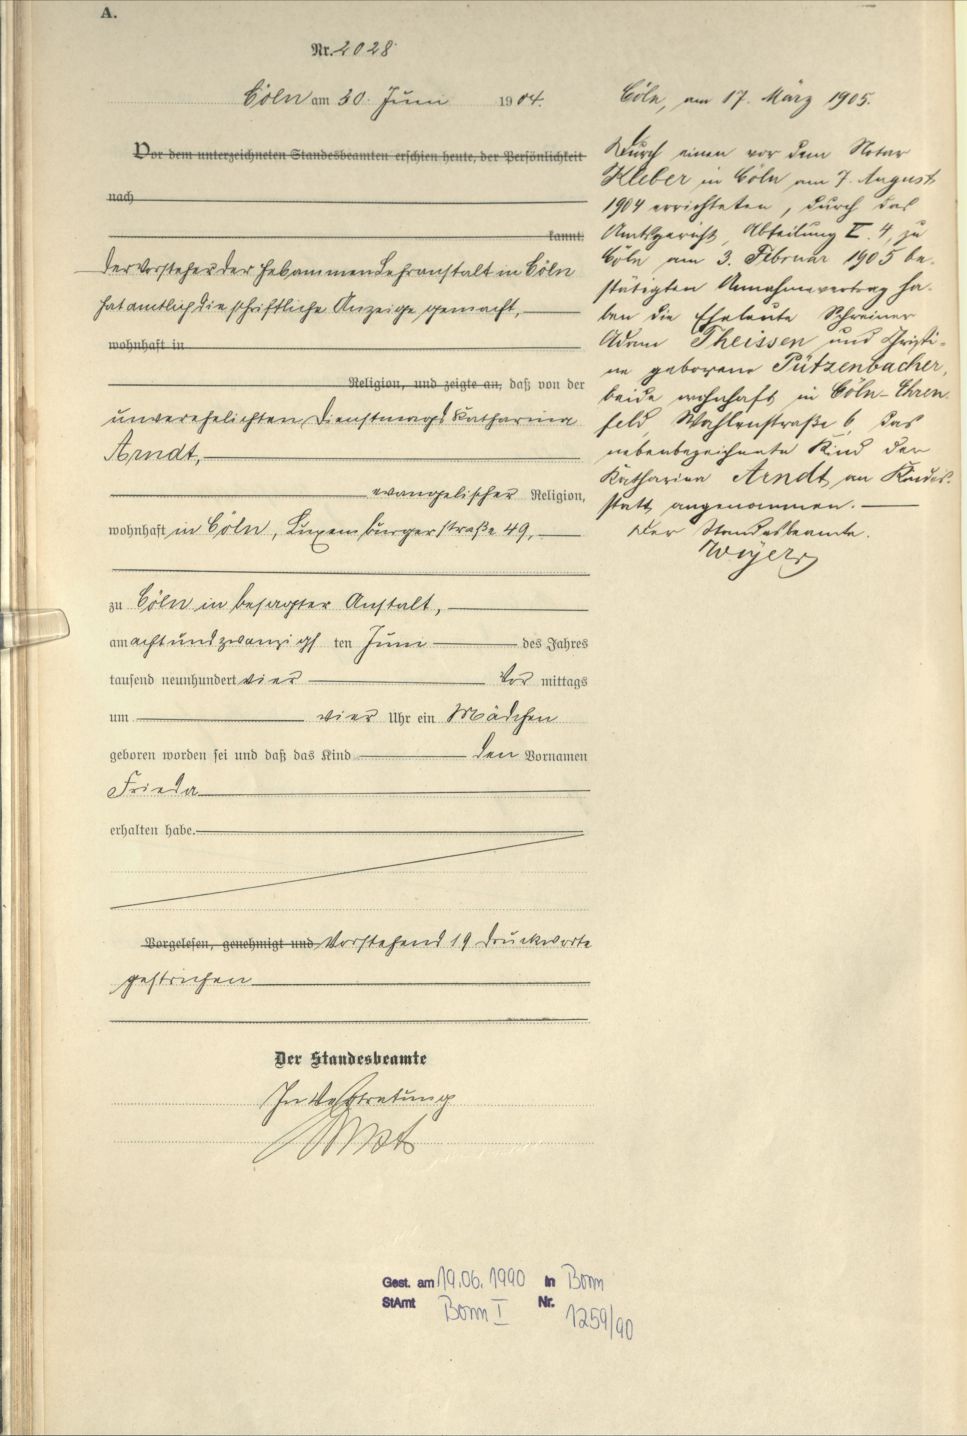 A.
Nr. 2028
Cöln am 30. Juni 1904.
Vor dem unterzeichneten Standesbeamten erschien heute, der Persönlichkeit
nach
kannt,
der Vorsteher der Hebammenlehranstalt in Cöln
hat amtlich die schriftliche Anzeige gemacht,
wohnhaft in
Religion, und zeigte an, daß von der
unverehelichten Dienstmagd Katharina
Arndt,
evangelischer Religion,
wohnhaft in Cöln, Luxemburgerstraße 49,
zu Cöln in besagter Anstalt,
am acht und zwanzigsten Juni des Jahres
tausend neunhundert vier Vor mittags
um vier Uhr ein Mädchen
geboren worden sei und daß das Kind den Vornamen
Frieda
erhalten habe.
Vorgelesen, genehmigt und Vorstehend 19 Druckworte
gestrichen
Der Standesbeamte
In Vertretung
Cöln, am 17. März 1905.
Durch einen vor dem Notar
Kleber in Cöln am 7. August
1904 errichteten, durch das
Amtsgericht, Abteilung I. 4, zu
Cöln am 3. Februar 1905 be-
stätigten Annahmevertrag ha-
ben die Eheleute Schreiner
Adam Theissen und Christi-
ne geborene Pützenbacher,
beide wohnhaft in Cöln-Ehren-
feld, Wahlenstraße 6, das
nebenbezeichnete Kind der
Katharina Arndt, an Kindes-
statt angenommen.
Der Standesbeamte.
Weyer
Gest. am 19.06.1990 in Bonn
StAmt Bonn I Nr. 1259/90